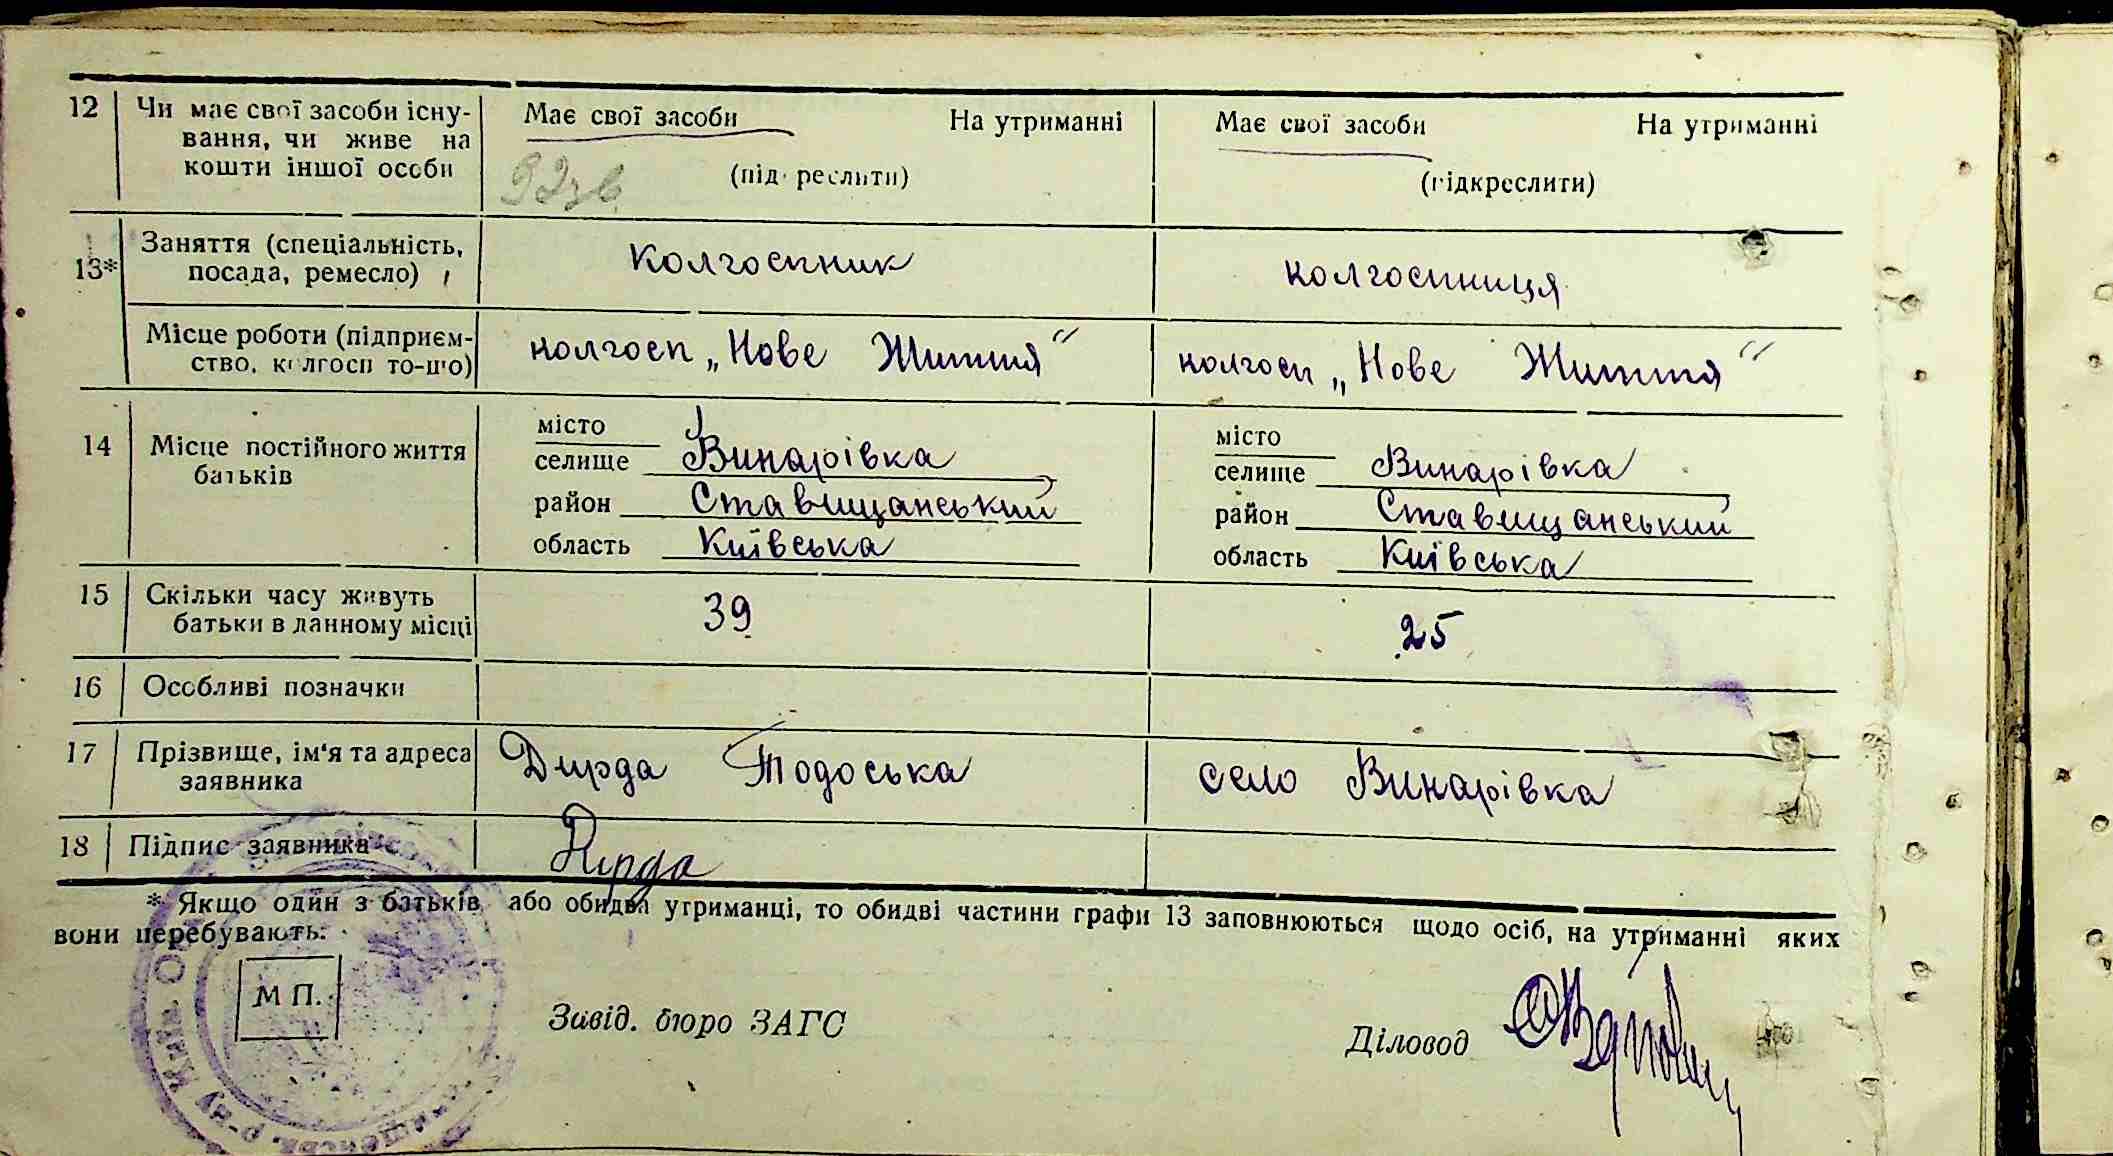 12 Чи має свої засоби існу-
вання, чи живе на
кошти іншої особи
Має свої засоби На утриманні
(підкреслити)
Має свої засоби На утриманні
(підкреслити)
13* Заняття (спеціальність,
посада, ремесло)
колгоспник
колгоспниця
Місце роботи (підприєм-
ство, колгосп то-що)
колгосп „Нове Життя“
колгосп „Нове Життя“
14 Місце постійного життя
батьків
місто
селище Винарівка
район Ставищанський
область Київська
місто
селище Винарівка
район Ставищанський
область Київська
15 Скільки часу живуть
батьки в данному місці
39
25
16 Особливі позначки
17 Прізвище, ім'я та адреса
заявника
Дирда Тодоська
село Винарівка
18 Підпис заявника
Дирда
* Якщо один з батьків або обидва утриманці, то обидві частини графи 13 заповнюються щодо осіб, на утриманні яких
вони перебувають.
М П.
Завід. бюро ЗАГС
Діловод